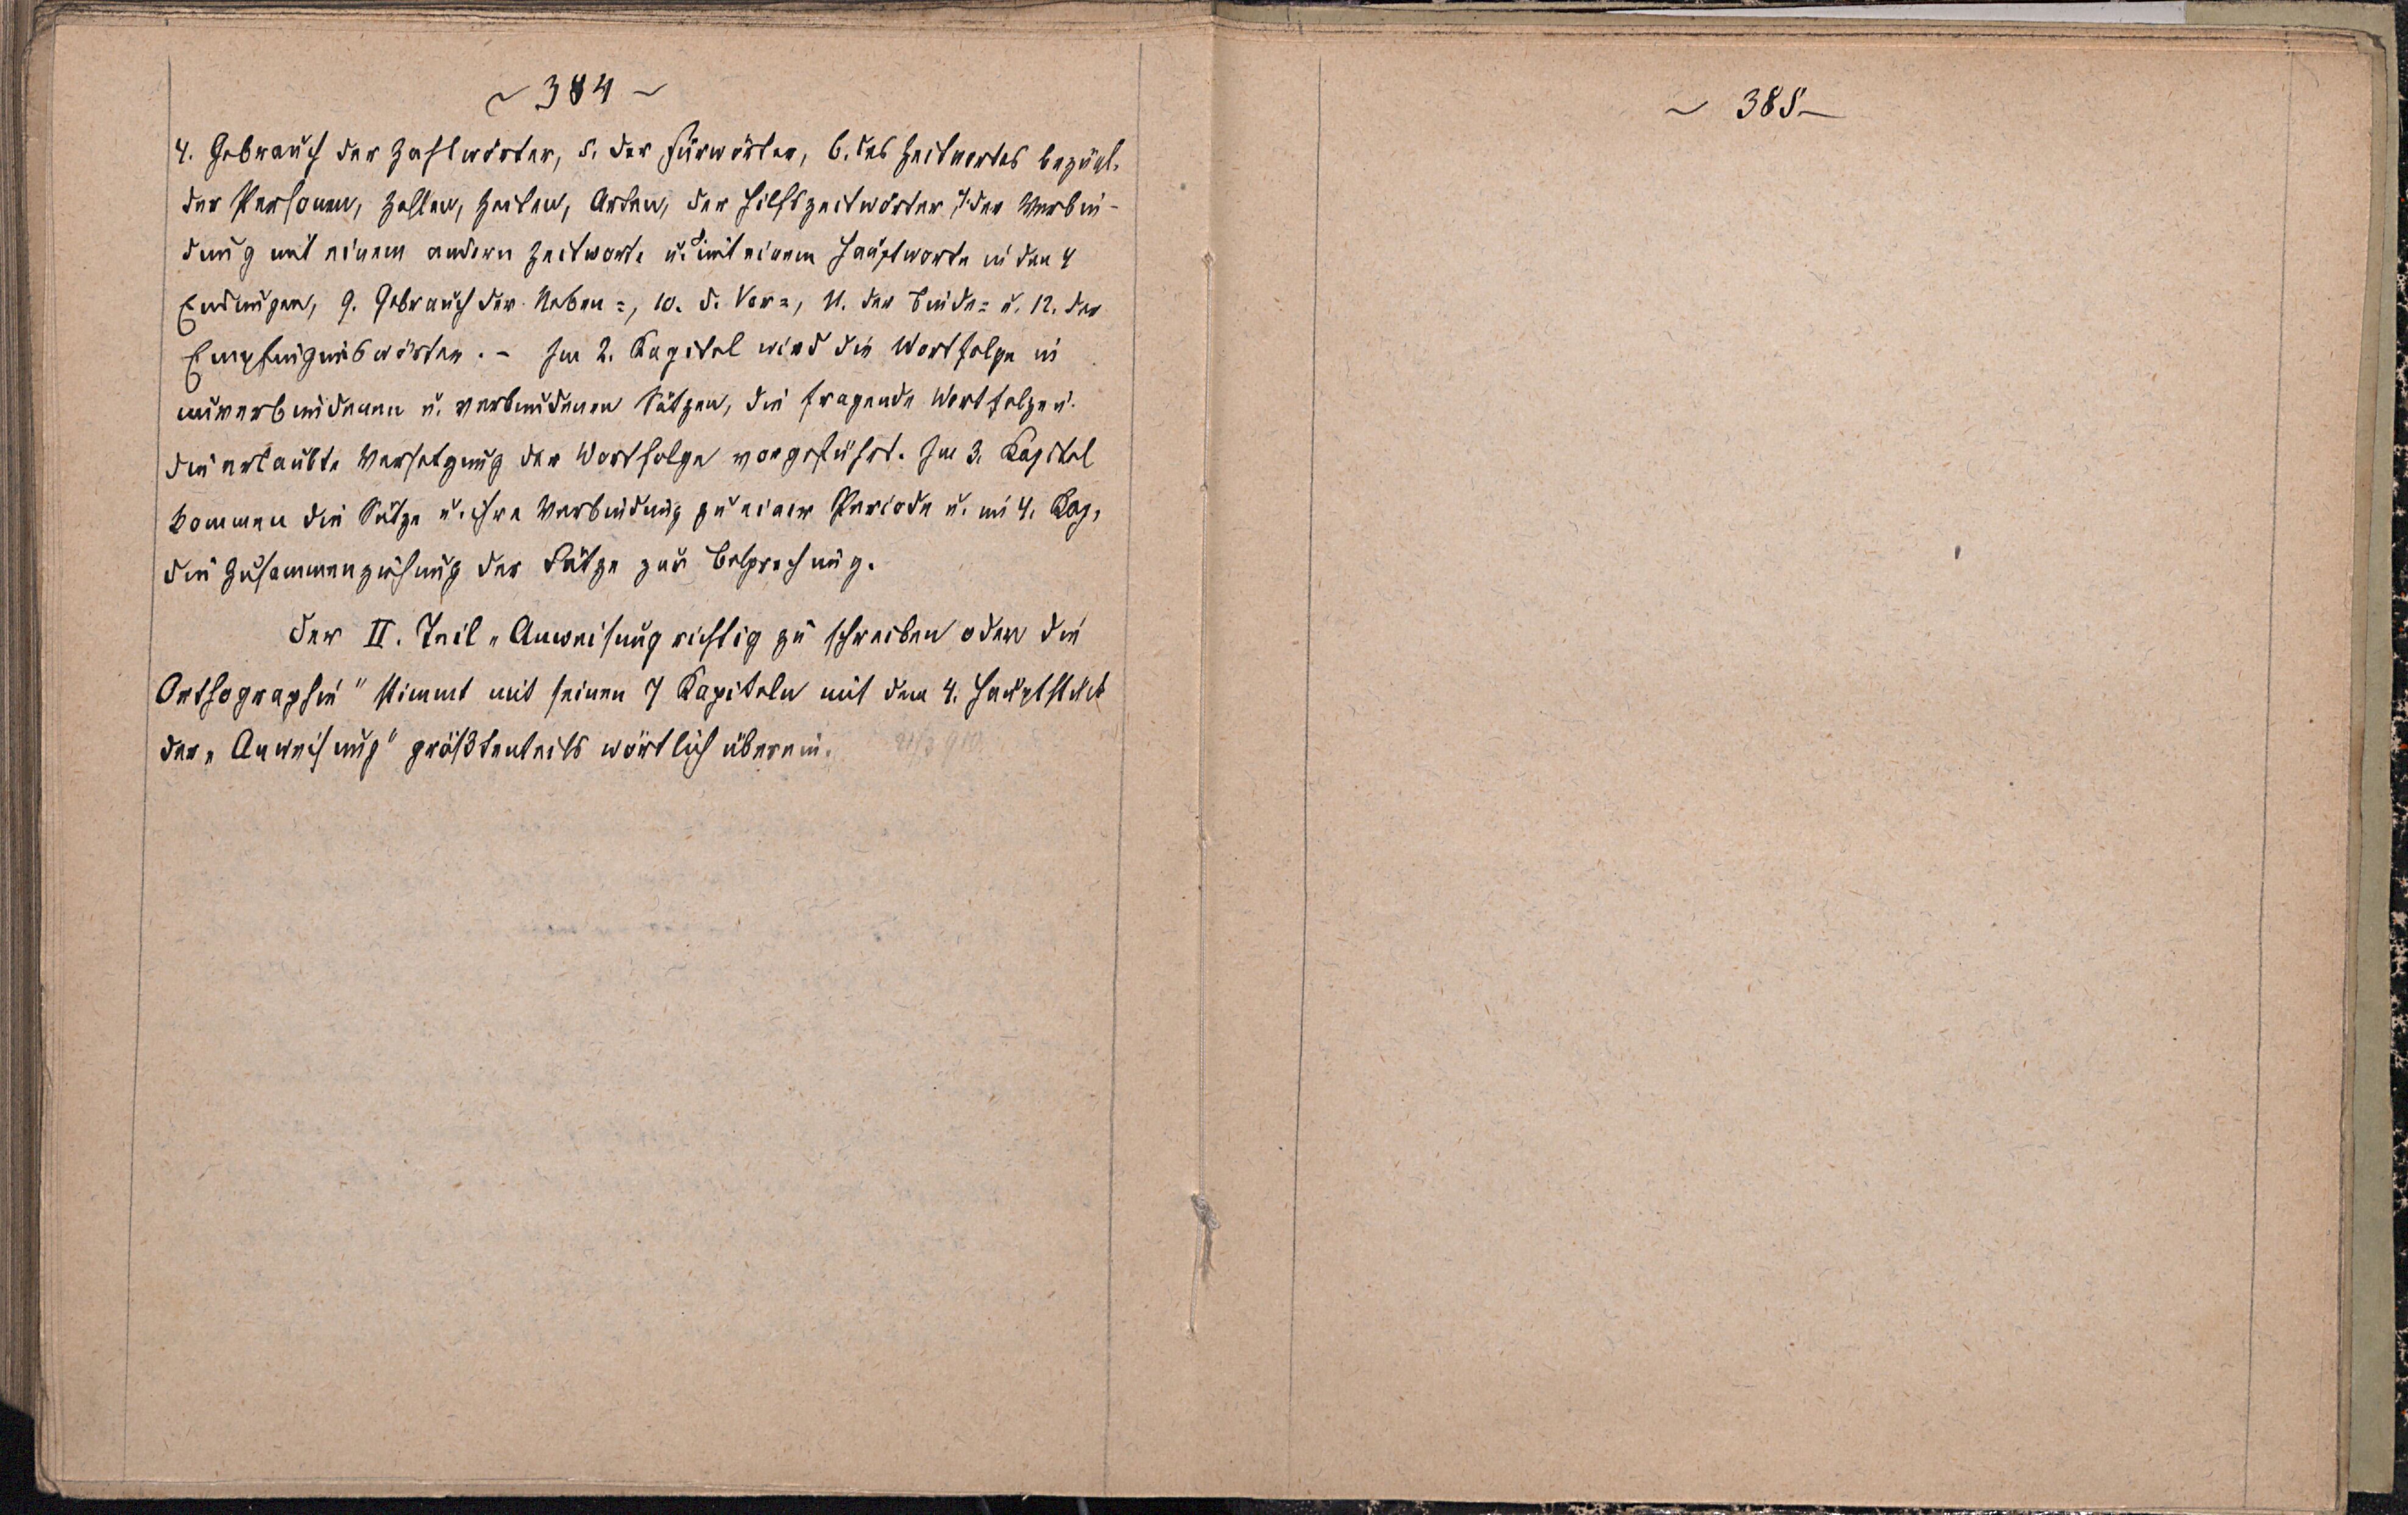 ~ 384 ~
4. Gebrauch der Zahlwörter, 5. der Fürwörter, 6. des Zeitwortes bezügl.
der Personen, Zahlen, Zeiten, Arten, der Hilfszeitwörter, 7. der Verbin-
dung mit einem andern Zeitworte u. 8. mit einem Hauptworte in den 4
Endungen, 9. Gebrauch der Neben=, 10. d. Vor=, 11. der Binde= u. 12. der
Empfindungswörter. - Im 2. Kapitel wird die Wortfolge in
unverbundenen u. verbundenen Sätzen, die fragende Wortfolge u.
die erlaubte Versetzung der Wortfolge vorgeführt. Im 3. Kapitel
kommen die Sätze u. ihre Verbindung zu einer Periode u. im 4. Kap.
die Zusammenziehung der Sätze zur Besprechung.
Der II. Teil „Anweisung richtig zu schreiben oder die
Orthographie" stimmt mit seinen 7 Kapiteln mit dem 4. Hauptstück
der „Anweisung" größtenteils wörtlich überein.
~ 385 ~